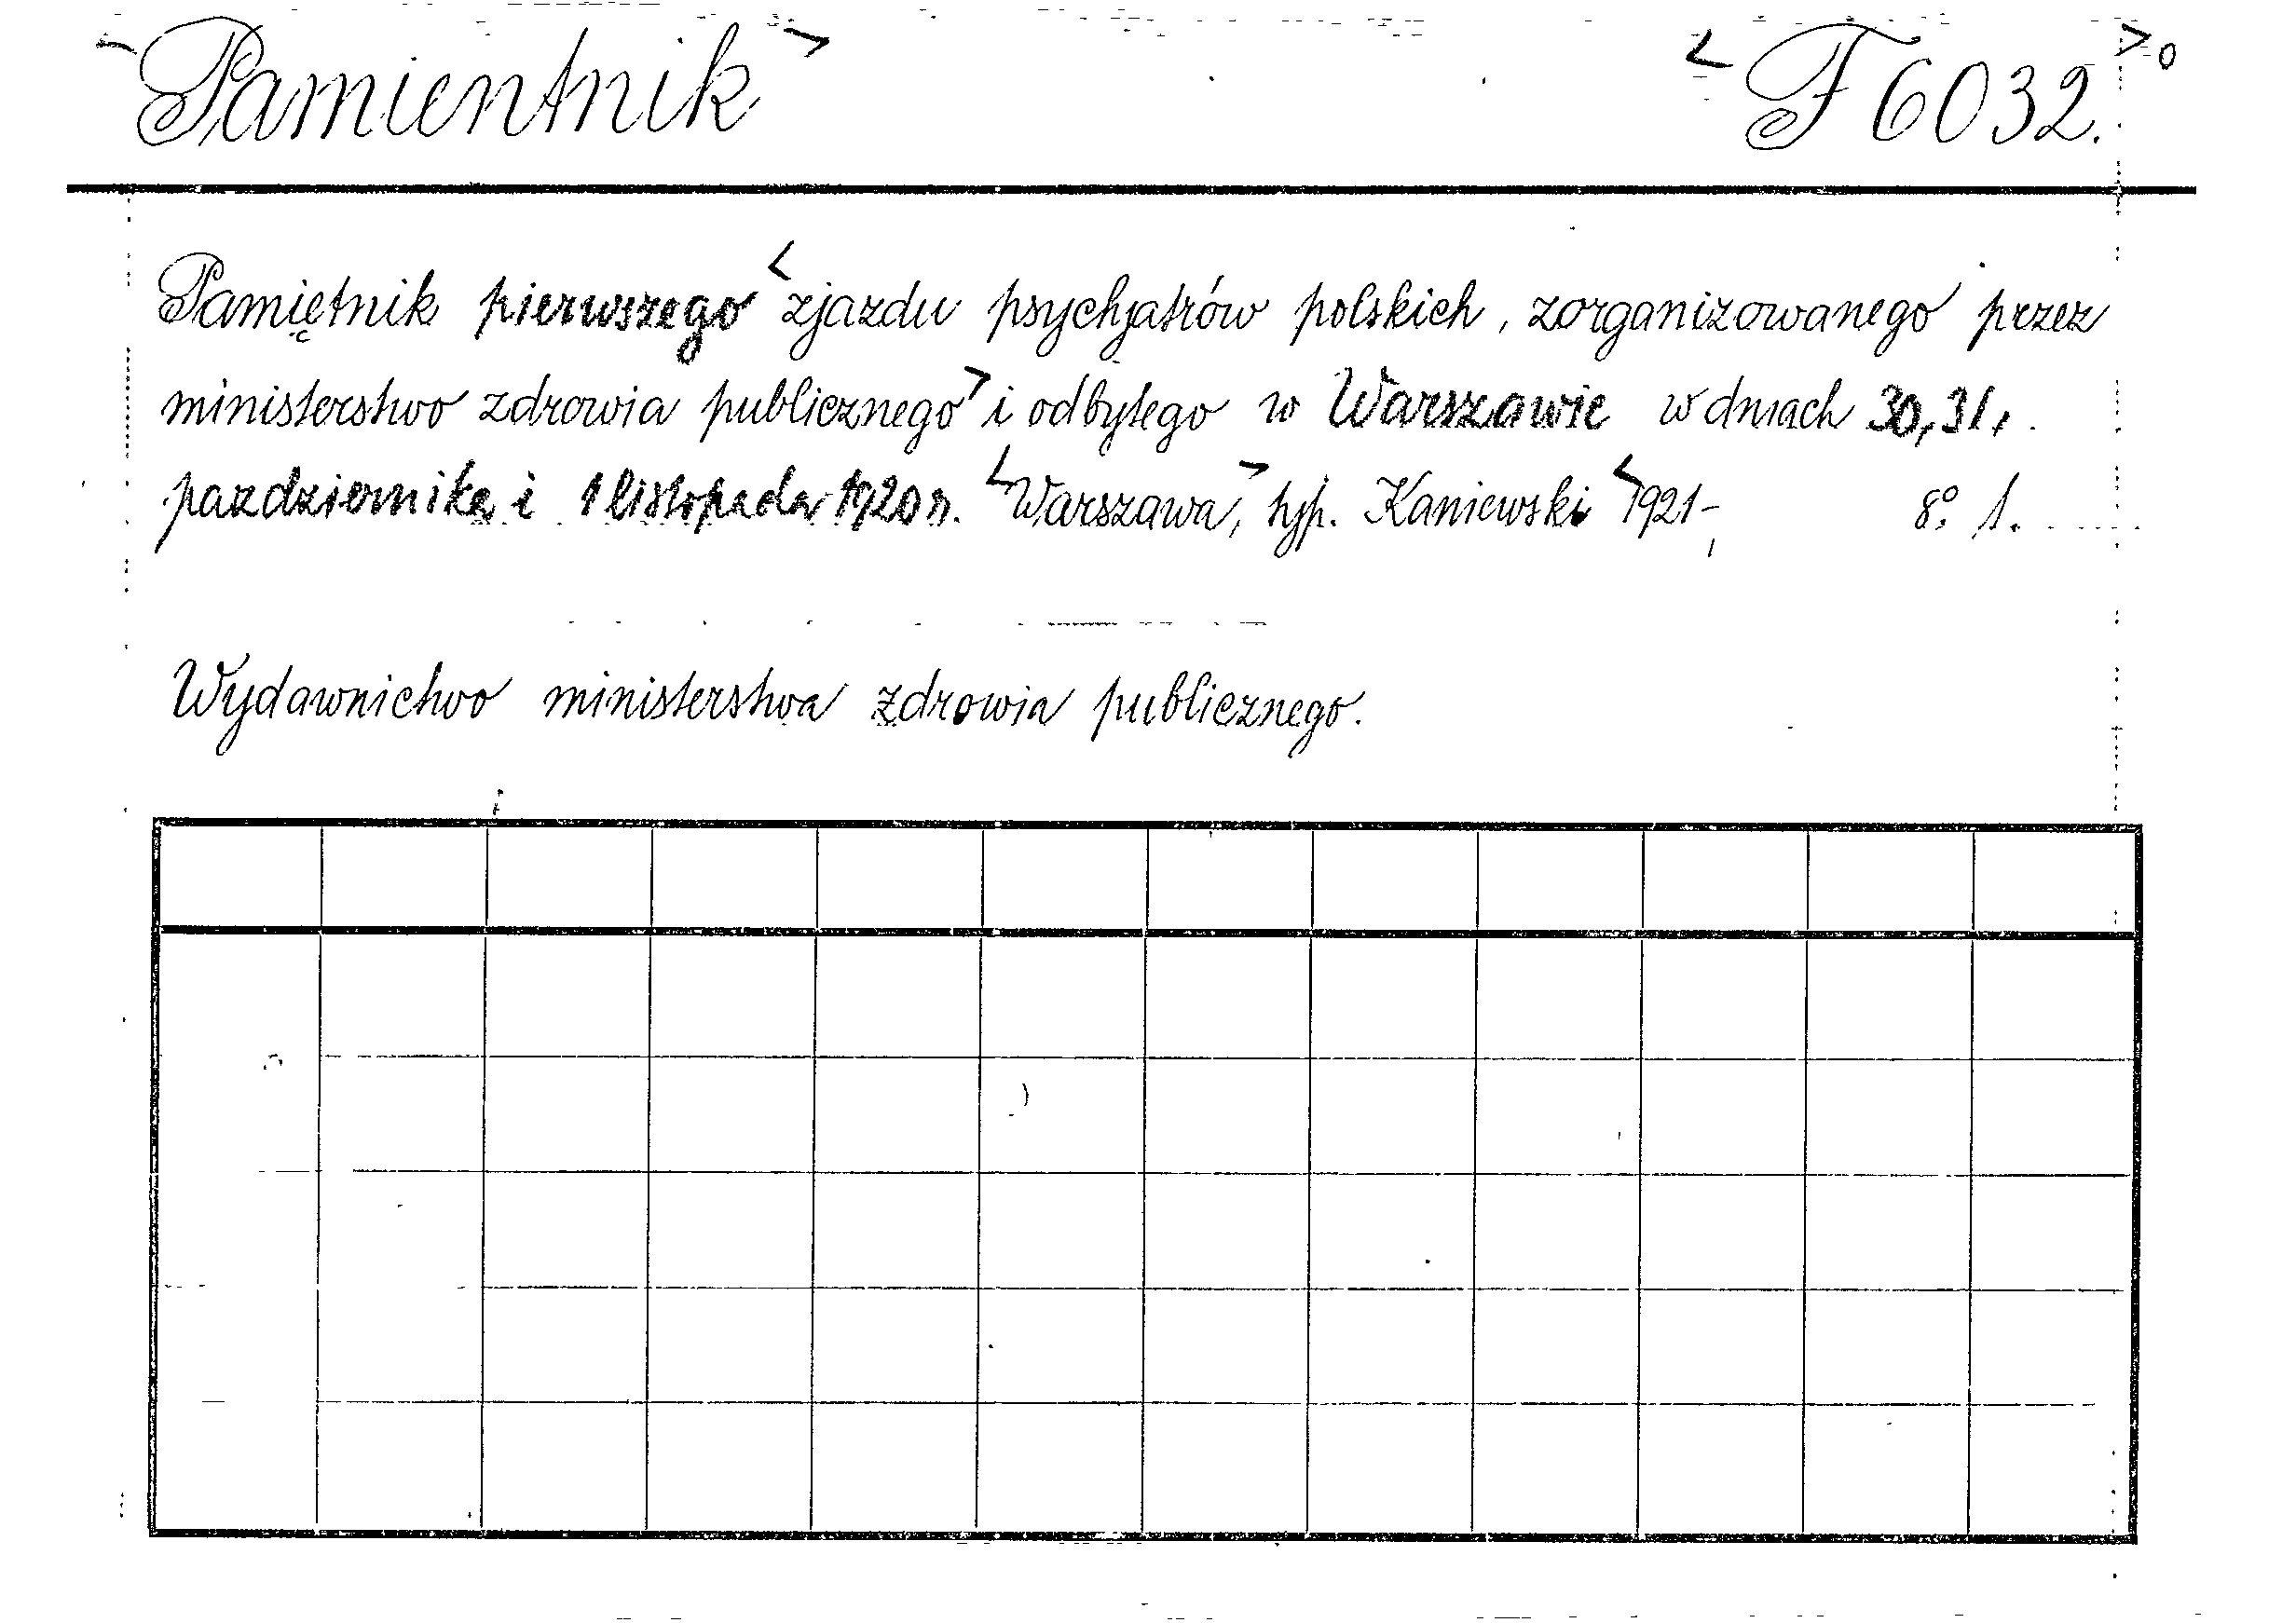 Pamientnik > < F 6032. >o
Pamiętnik pierwszego < zjazdu psychjatrów polskich, zorganizowanego przez
ministerstwo zdrowia publicznego > i odbytego w Warszawie w dniach 30, 31,
pazdziernika i 1 listopada 1920 r. < Warszawa, > typ. Kaniewski < 1921- 8° 1.
Wydawnictwo ministerstwa zdrowia publicznego.